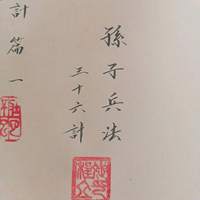 孫子兵法
三十六計
計篇一